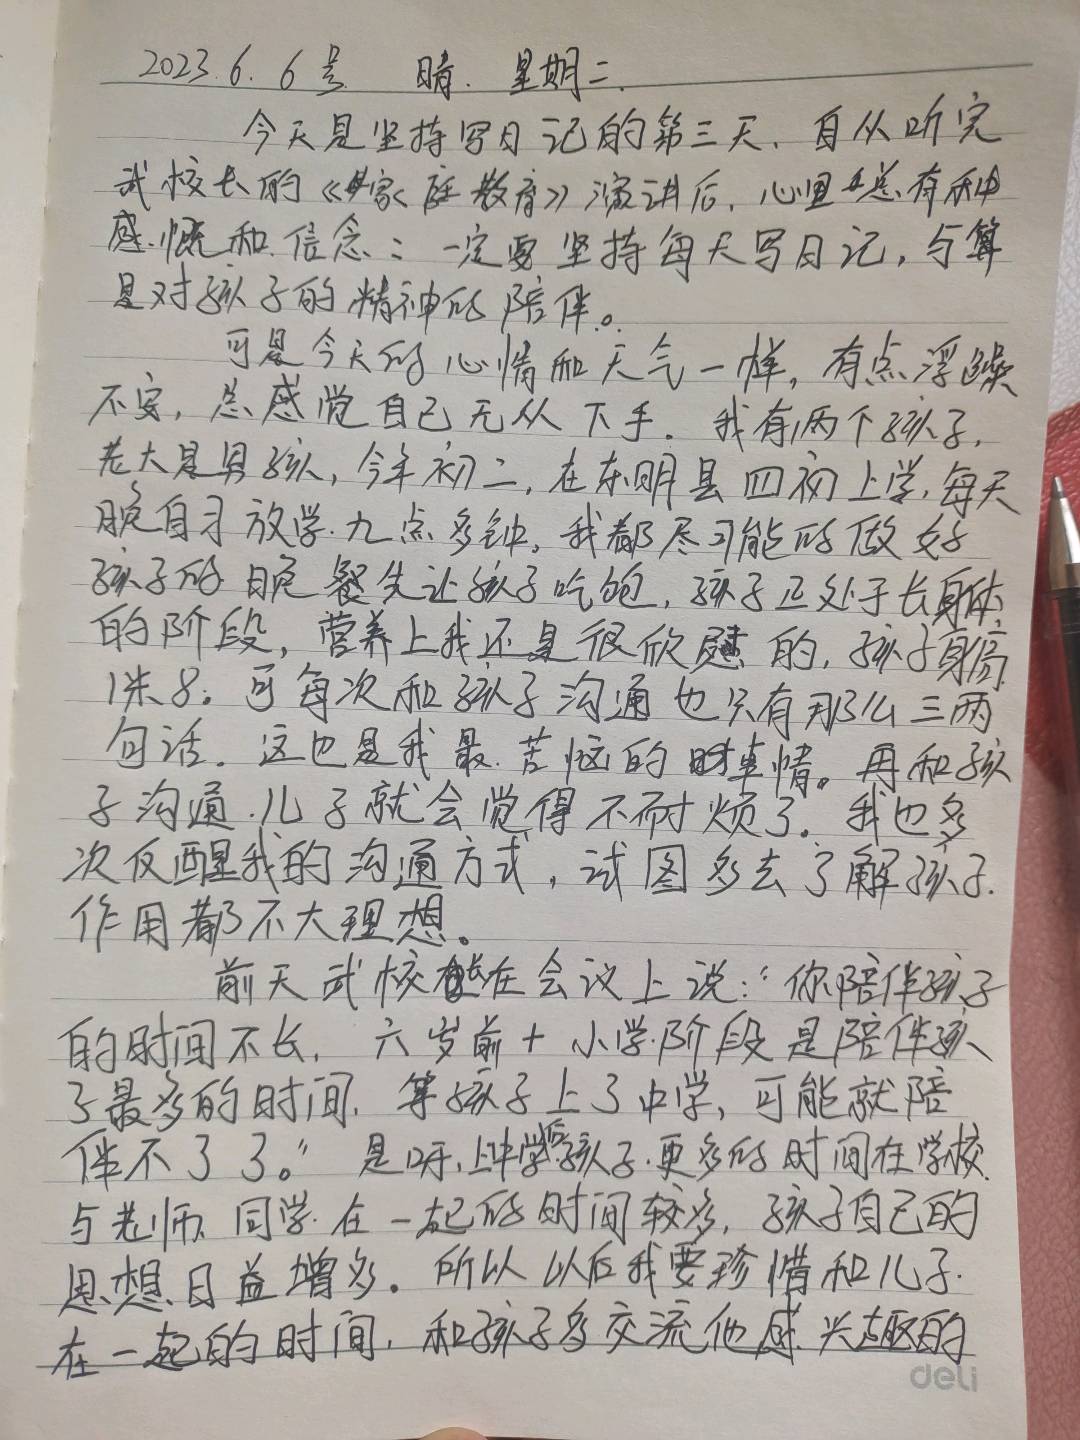 2023.6.6号 晴. 星期二.
今天是坚持写日记的第三天. 自从听完
武校长的《家庭教育》演讲后, 心里总有种
感慨和信念: 一定要坚持每天写日记, 与算
是对孩子的精神的陪伴。
可是今天的心情和天气一样, 有点浮躁
不安, 总感觉自己无从下手. 我有两个孩子,
老大是男孩, 今年初二, 在东明县四初上学, 每天
晚自习放学九点多钟, 我都尽可能的做好
孩子的晚餐先让孩子吃饱, 孩子正处于长身体
的阶段, 营养上我还是很欣慰的, 孩子身高
1米8. 可每次和孩子沟通也只有那么三两
句话. 这也是我最苦恼的事情。再和孩
子沟通儿子就会觉得不耐烦了. 我也多
次反醒我的沟通方式, 试图多去了解孩子.
作用都不大理想。
前天武校长在会议上说: “你陪伴孩子
的时间不长, 六岁前+小学阶段是陪伴孩
子最多的时间. 等孩子上了中学, 可能就陪
伴不了了。” 是呀, 上中学后孩子更多的时间在学校
与老师同学在一起的时间较多, 孩子自己的
思想日益增多. 所以以后我要珍惜和儿子
在一起的时间, 和孩子多交流他感兴趣的
deli